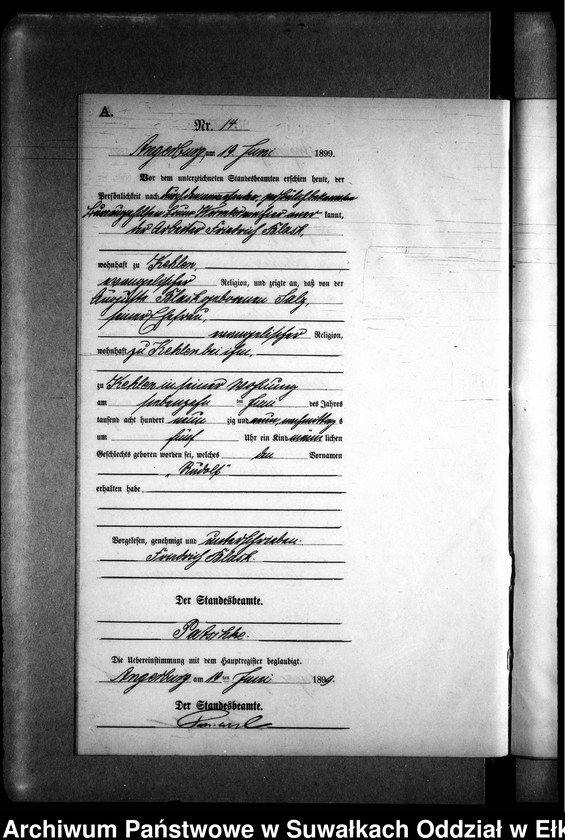 A.
Nr. 14.
Angerburg am 19. Juni 1899.
Vor dem unterzeichneten Standesbeamten erschien heute, der
Persönlichkeit nach
kannt,
der Arbeiter Friedrich Klask,
wohnhaft zu Kehlen,
evangelischer Religion, und zeigte an, daß von der
Auguste Klask geborenen Salz,
seiner Ehefrau,
evangelischer Religion,
wohnhaft zu Kehlen bei ihm,
zu Kehlen in seiner Wohnung
am siebzehn ten Juni des Jahres
tausend acht hundert neun zig und neun, nachmittag s
um fünf Uhr ein Kind männlichen
Geschlechts geboren worden sei, welches den Vornamen
„Rudolf"
erhalten habe.
Vorgelesen, genehmigt und unterschrieben.
Friedrich Klask.
Der Standesbeamte.
Patschke.
Die Uebereinstimmung mit dem Hauptregister beglaubigt.
Angerburg am 19 ten Juni 1899.
Der Standesbeamte.
Archiwum Państwowe w Suwałkach Oddział w Ełk